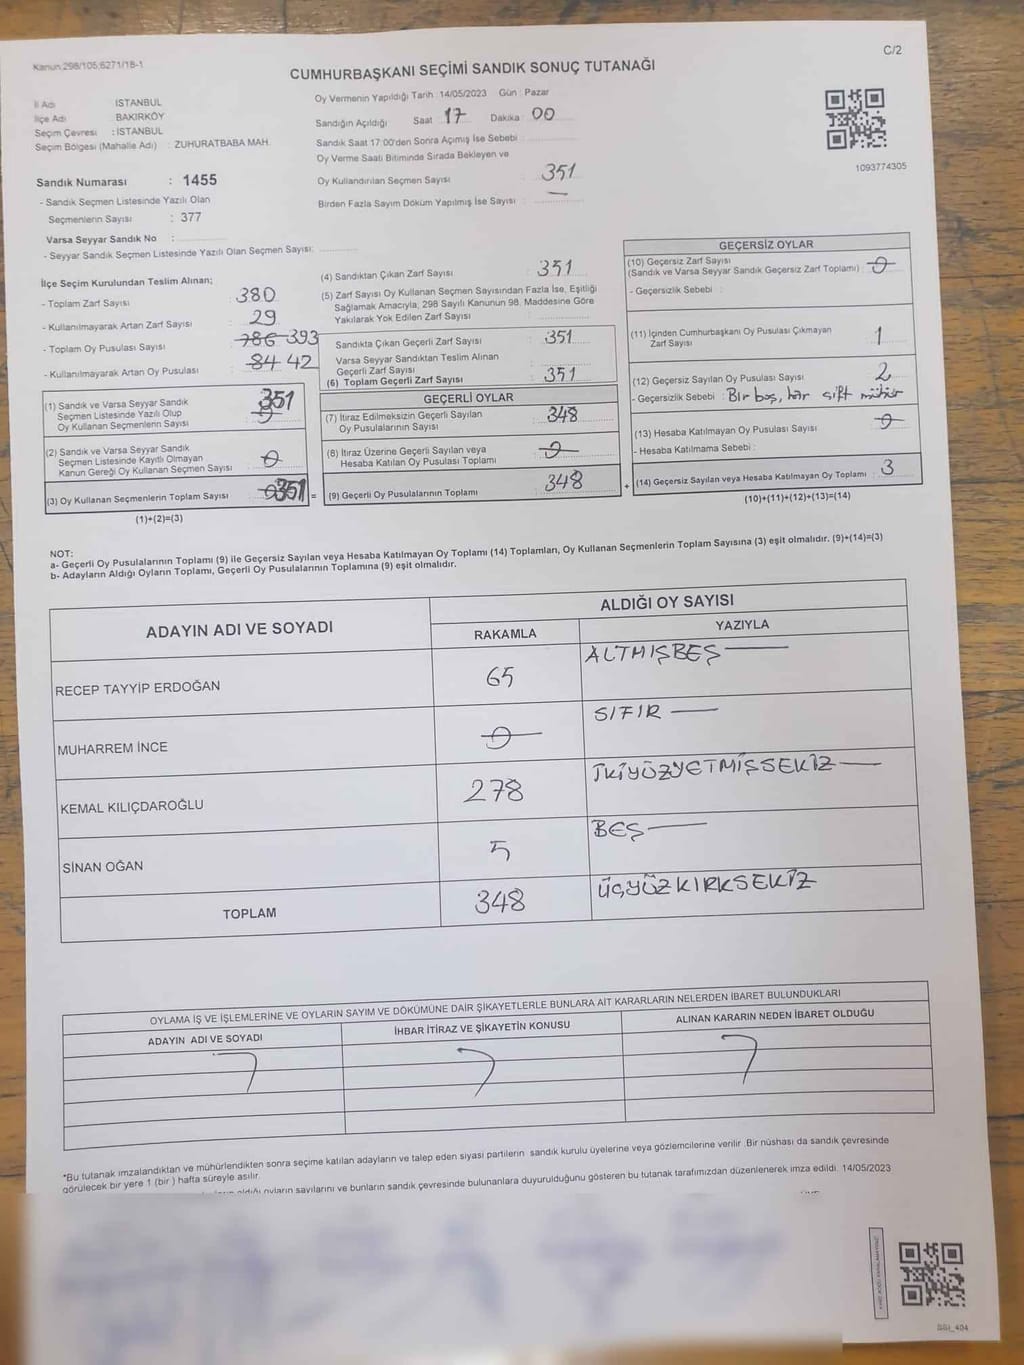 Kanun:298/105;6271/18-1
C/2
CUMHURBAŞKANI SEÇİMİ SANDIK SONUÇ TUTANAĞI
İl Adı İSTANBUL
İlçe Adı BAKIRKÖY
Seçim Çevresi : İSTANBUL
Seçim Bölgesi (Mahalle Adı) : ZUHURATBABA MAH.
Sandık Numarası : 1455
- Sandık Seçmen Listesinde Yazılı Olan
Seçmenlerin Sayısı : 377
Varsa Seyyar Sandık No :
- Seyyar Sandık Seçmen Listesinde Yazılı Olan Seçmen Sayısı:
Oy Vermenin Yapıldığı Tarih : 14/05/2023 Gün : Pazar
Sandığın Açıldığı Saat 17 Dakika : 00
Sandık Saat 17:00'den Sonra Açımış İse Sebebi :
Oy Verme Saati Bitiminde Sırada Bekleyen ve
Oy Kullandırılan Seçmen Sayısı : 351
Birden Fazla Sayım Döküm Yapılmış İse Sayısı : —
1093774305
İlçe Seçim Kurulundan Teslim Alınan;
- Toplam Zarf Sayısı : 380
- Kullanılmayarak Artan Zarf Sayısı : 29
- Toplam Oy Pusulası Sayısı : 786 393
- Kullanılmayarak Artan Oy Pusulası : 84 42
(1) Sandık ve Varsa Seyyar Sandık
Seçmen Listesinde Yazılı Olup
Oy Kullanan Seçmenlerin Sayısı : 351
(2) Sandık ve Varsa Seyyar Sandık
Seçmen Listesinde Kayıtlı Olmayan
Kanun Gereği Oy Kullanan Seçmen Sayısı : 0
(3) Oy Kullanan Seçmenlerin Toplam Sayısı : 0351 =
(1)+(2)=(3)
(4) Sandıktan Çıkan Zarf Sayısı : 351
(5) Zarf Sayısı Oy Kullanan Seçmen Sayısından Fazla İse, Eşitliği
Sağlamak Amacıyla, 298 Sayılı Kanunun 98. Maddesine Göre
Yakılarak Yok Edilen Zarf Sayısı :
Sandıkta Çıkan Geçerli Zarf Sayısı : 351
Varsa Seyyar Sandıktan Teslim Alınan
Geçerli Zarf Sayısı :
(6) Toplam Geçerli Zarf Sayısı : 351
GEÇERLİ OYLAR
(7) İtiraz Edilmeksizin Geçerli Sayılan
Oy Pusulalarının Sayısı : 348
(8) İtiraz Üzerine Geçerli Sayılan veya
Hesaba Katılan Oy Pusulası Toplamı : 0
(9) Geçerli Oy Pusulalarının Toplamı : 348 +
GEÇERSİZ OYLAR
(10) Geçersiz Zarf Sayısı
(Sandık ve Varsa Seyyar Sandık Geçersiz Zarf Toplamı) : 0
- Geçersizlik Sebebi :
(11) İçinden Cumhurbaşkanı Oy Pusulası Çıkmayan
Zarf Sayısı : 1
(12) Geçersiz Sayılan Oy Pusulası Sayısı : 2
- Geçersizlik Sebebi : Bir boş, bir çift mühür
(13) Hesaba Katılmayan Oy Pusulası Sayısı : 0
- Hesaba Katılmama Sebebi :
(14) Geçersiz Sayılan veya Hesaba Katılmayan Oy Toplamı : 3
(10)+(11)+(12)+(13)=(14)
NOT:
a- Geçerli Oy Pusulalarının Toplamı (9) ile Geçersiz Sayılan veya Hesaba Katılmayan Oy Toplamı (14) Toplamları, Oy Kullanan Seçmenlerin Toplam Sayısına (3) eşit olmalıdır. (9)+(14)=(3)
b- Adayların Aldığı Oyların Toplamı, Geçerli Oy Pusulalarının Toplamına (9) eşit olmalıdır.
ADAYIN ADI VE SOYADI
ALDIĞI OY SAYISI
RAKAMLA
YAZIYLA
RECEP TAYYİP ERDOĞAN 65 ALTMIŞBEŞ
MUHARREM İNCE 0 SIFIR
KEMAL KILIÇDAROĞLU 278 İKİYÜZYETMİŞSEKİZ
SİNAN OĞAN 5 BEŞ
TOPLAM 348 ÜÇYÜZKIRKSEKİZ
OYLAMA İŞ VE İŞLEMLERİNE VE OYLARIN SAYIM VE DÖKÜMÜNE DAİR ŞİKAYETLERLE BUNLARA AİT KARARLARIN NELERDEN İBARET BULUNDUKLARI
ADAYIN ADI VE SOYADI
İHBAR İTİRAZ VE ŞİKAYETİN KONUSU
ALINAN KARARIN NEDEN İBARET OLDUĞU
*Bu tutanak imzalandıktan ve mühürlendikten sonra seçime katılan adayların ve talep eden siyasi partilerin sandık kurulu üyelerine veya gözlemcilerine verilir .Bir nüshası da sandık çevresinde
görülecek bir yere 1 (bir ) hafta süreyle asılır.
aldığı oyların sayılarını ve bunların sandık çevresinde bulunanlara duyurulduğunu gösteren bu tutanak tarafımızdan düzenlenerek imza edildi. 14/05/2023